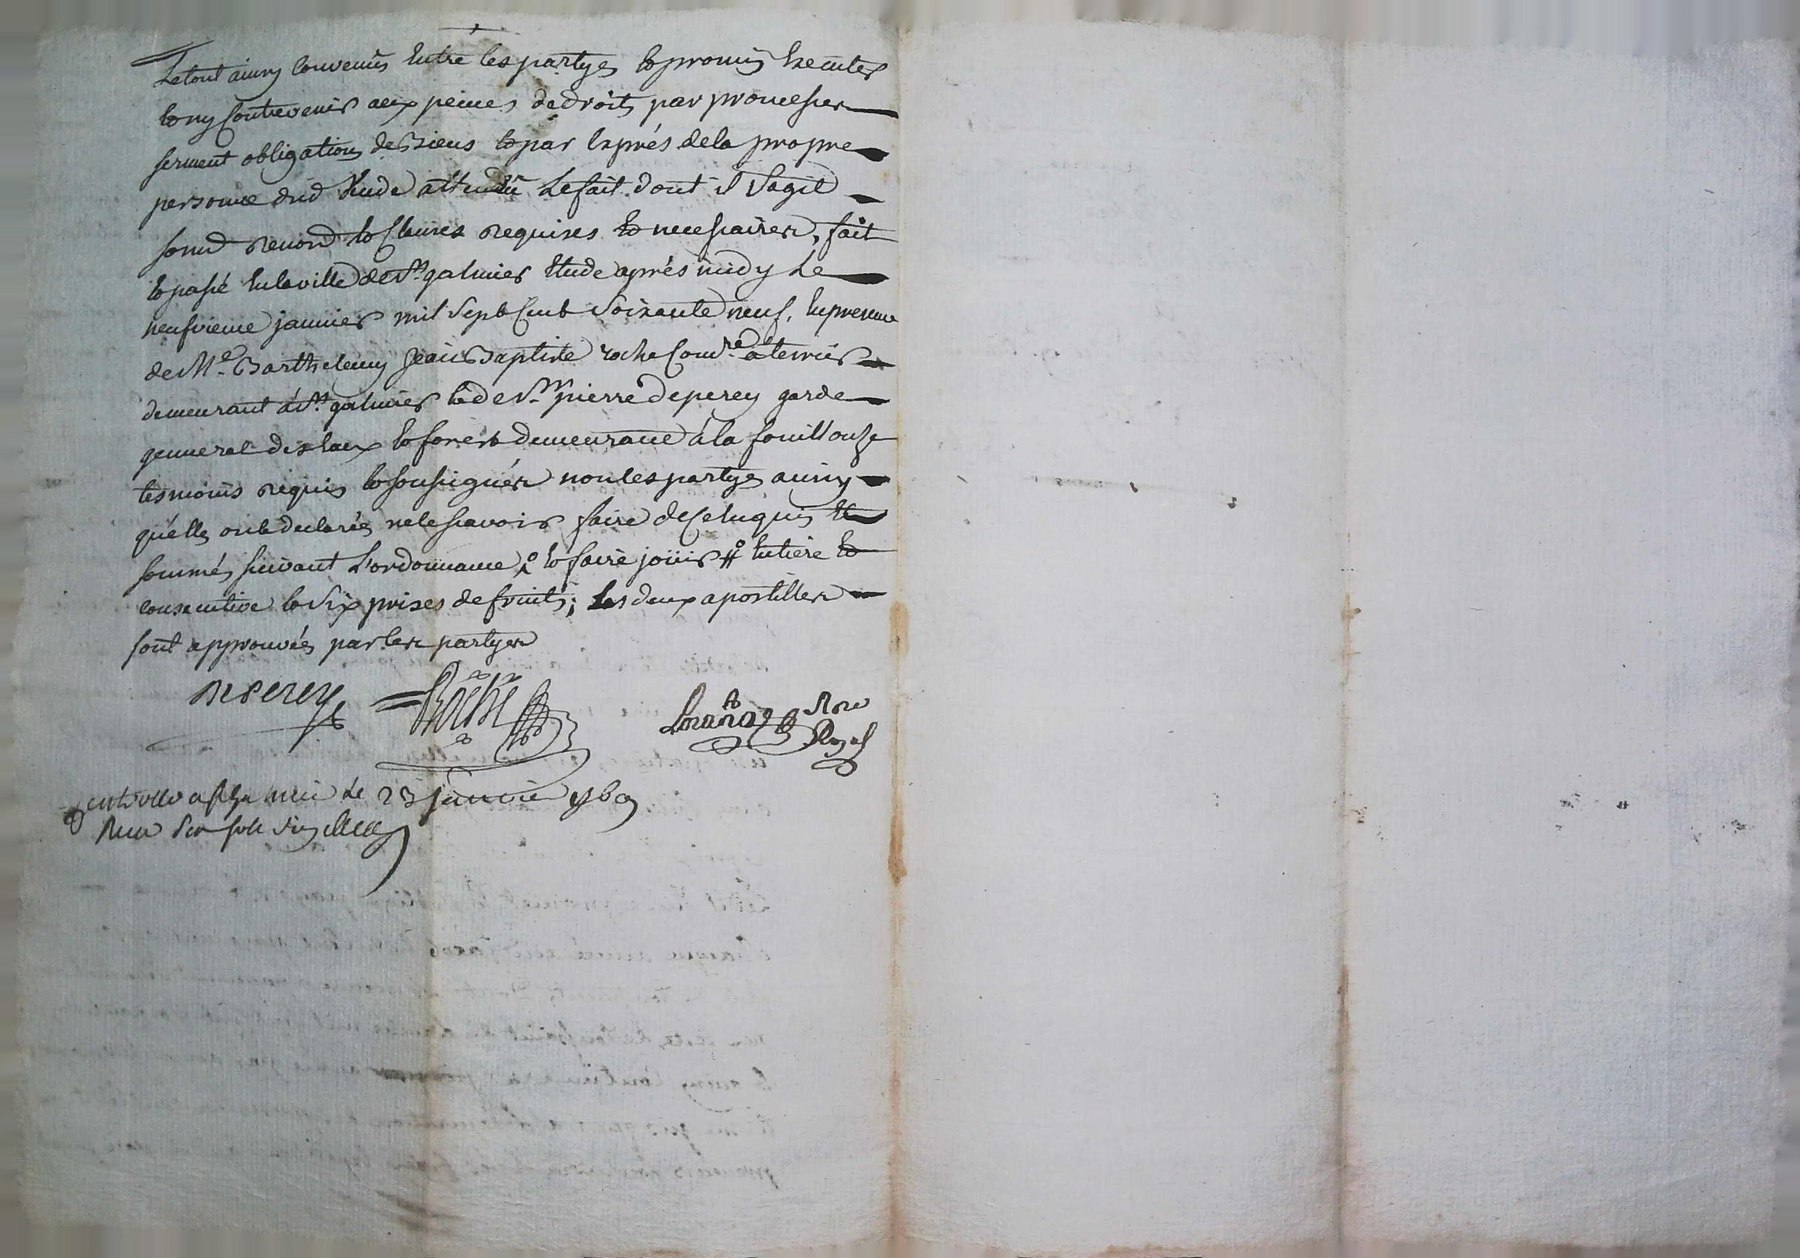 Le tout ainsy convenus Entre les partyes & promis Executer
& ny Contrevenir aux peines de droits par promesses
serment obligations de Biens & par Exprés de la propre
personne dud attendu Le fait dont il s'agit
soumd renond & Clauses requises & necessaires, fait
& passé En la ville de St galmier Etude aprés midy Le
neufvieme janvier mil Sept Cent Soixante neuf, En presence
de Me. Barthelemy Jean Baptiste roche Comre a terrier
demeurant á St galmier & de Sr pierre deperey garde
general des Eaux & forest demeurant á la fouillouze
tesmoins requis & soussignés non les partyes ainsy
qu'elles ont declarés ne le scavoir faire de Ce Enquis Et
sommés suivant L'ordonnance, & faire joüir # Entiere &
consecutive & Six prises de fruits; Les deux apostilles
sont approuvés par les partyes
deperey Roche Nore
Royal
controllé a St galmier le 23 janvier 1769